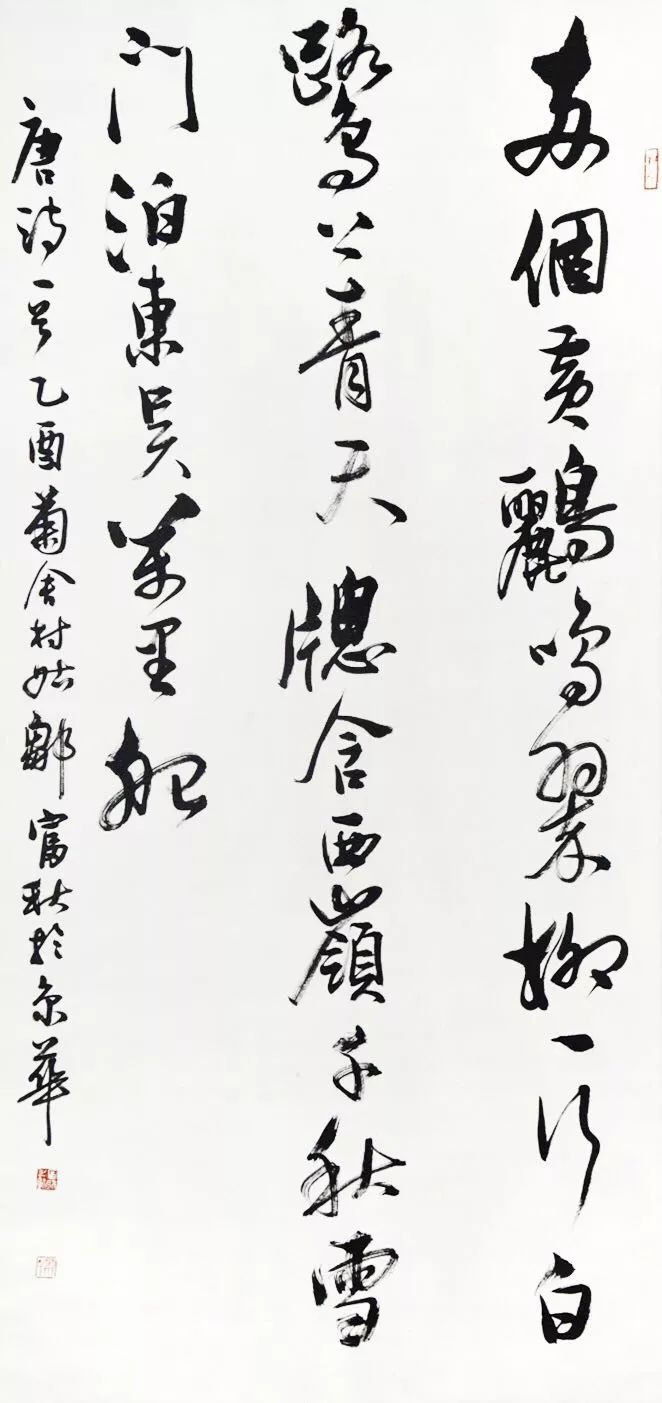 兩個黄鸝鳴翠柳一行白
鷺上青天牕含西嶺千秋雪
門泊東吴萬里船
唐詩一首乙酉菊舍村姑鄒富秋於京華